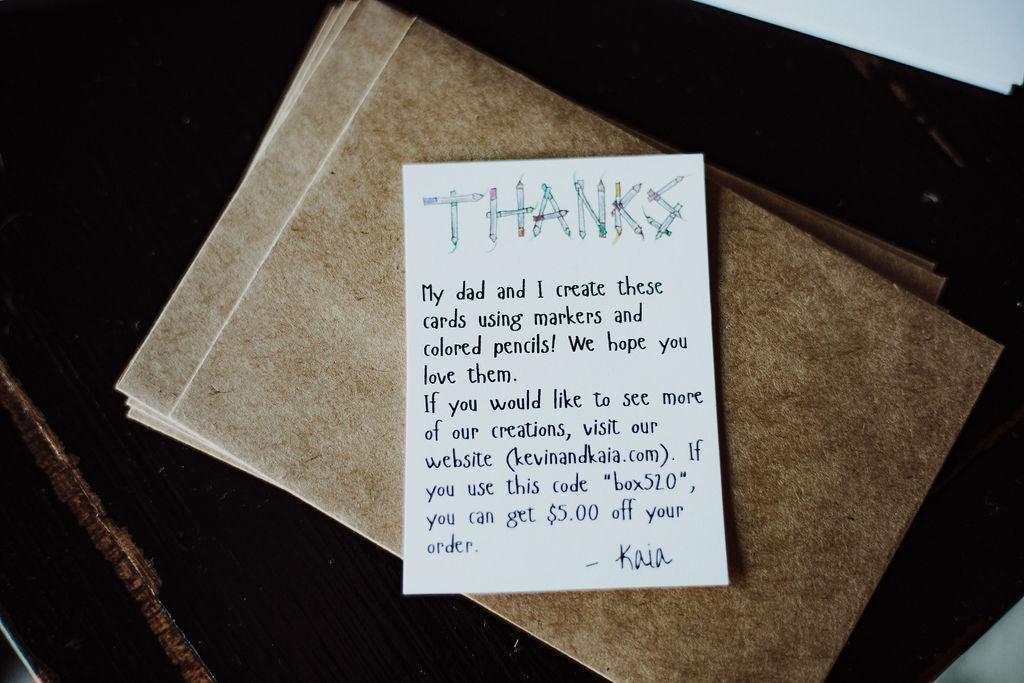 THANKS
My dad and I create these
cards using markers and
colored pencils! We hope you
love them.
If you would like to see more
of our creations, visit our
website (kevinandkaia.com). If
you use this code "box520",
you can get $5.00 off your
order.
- Kaia